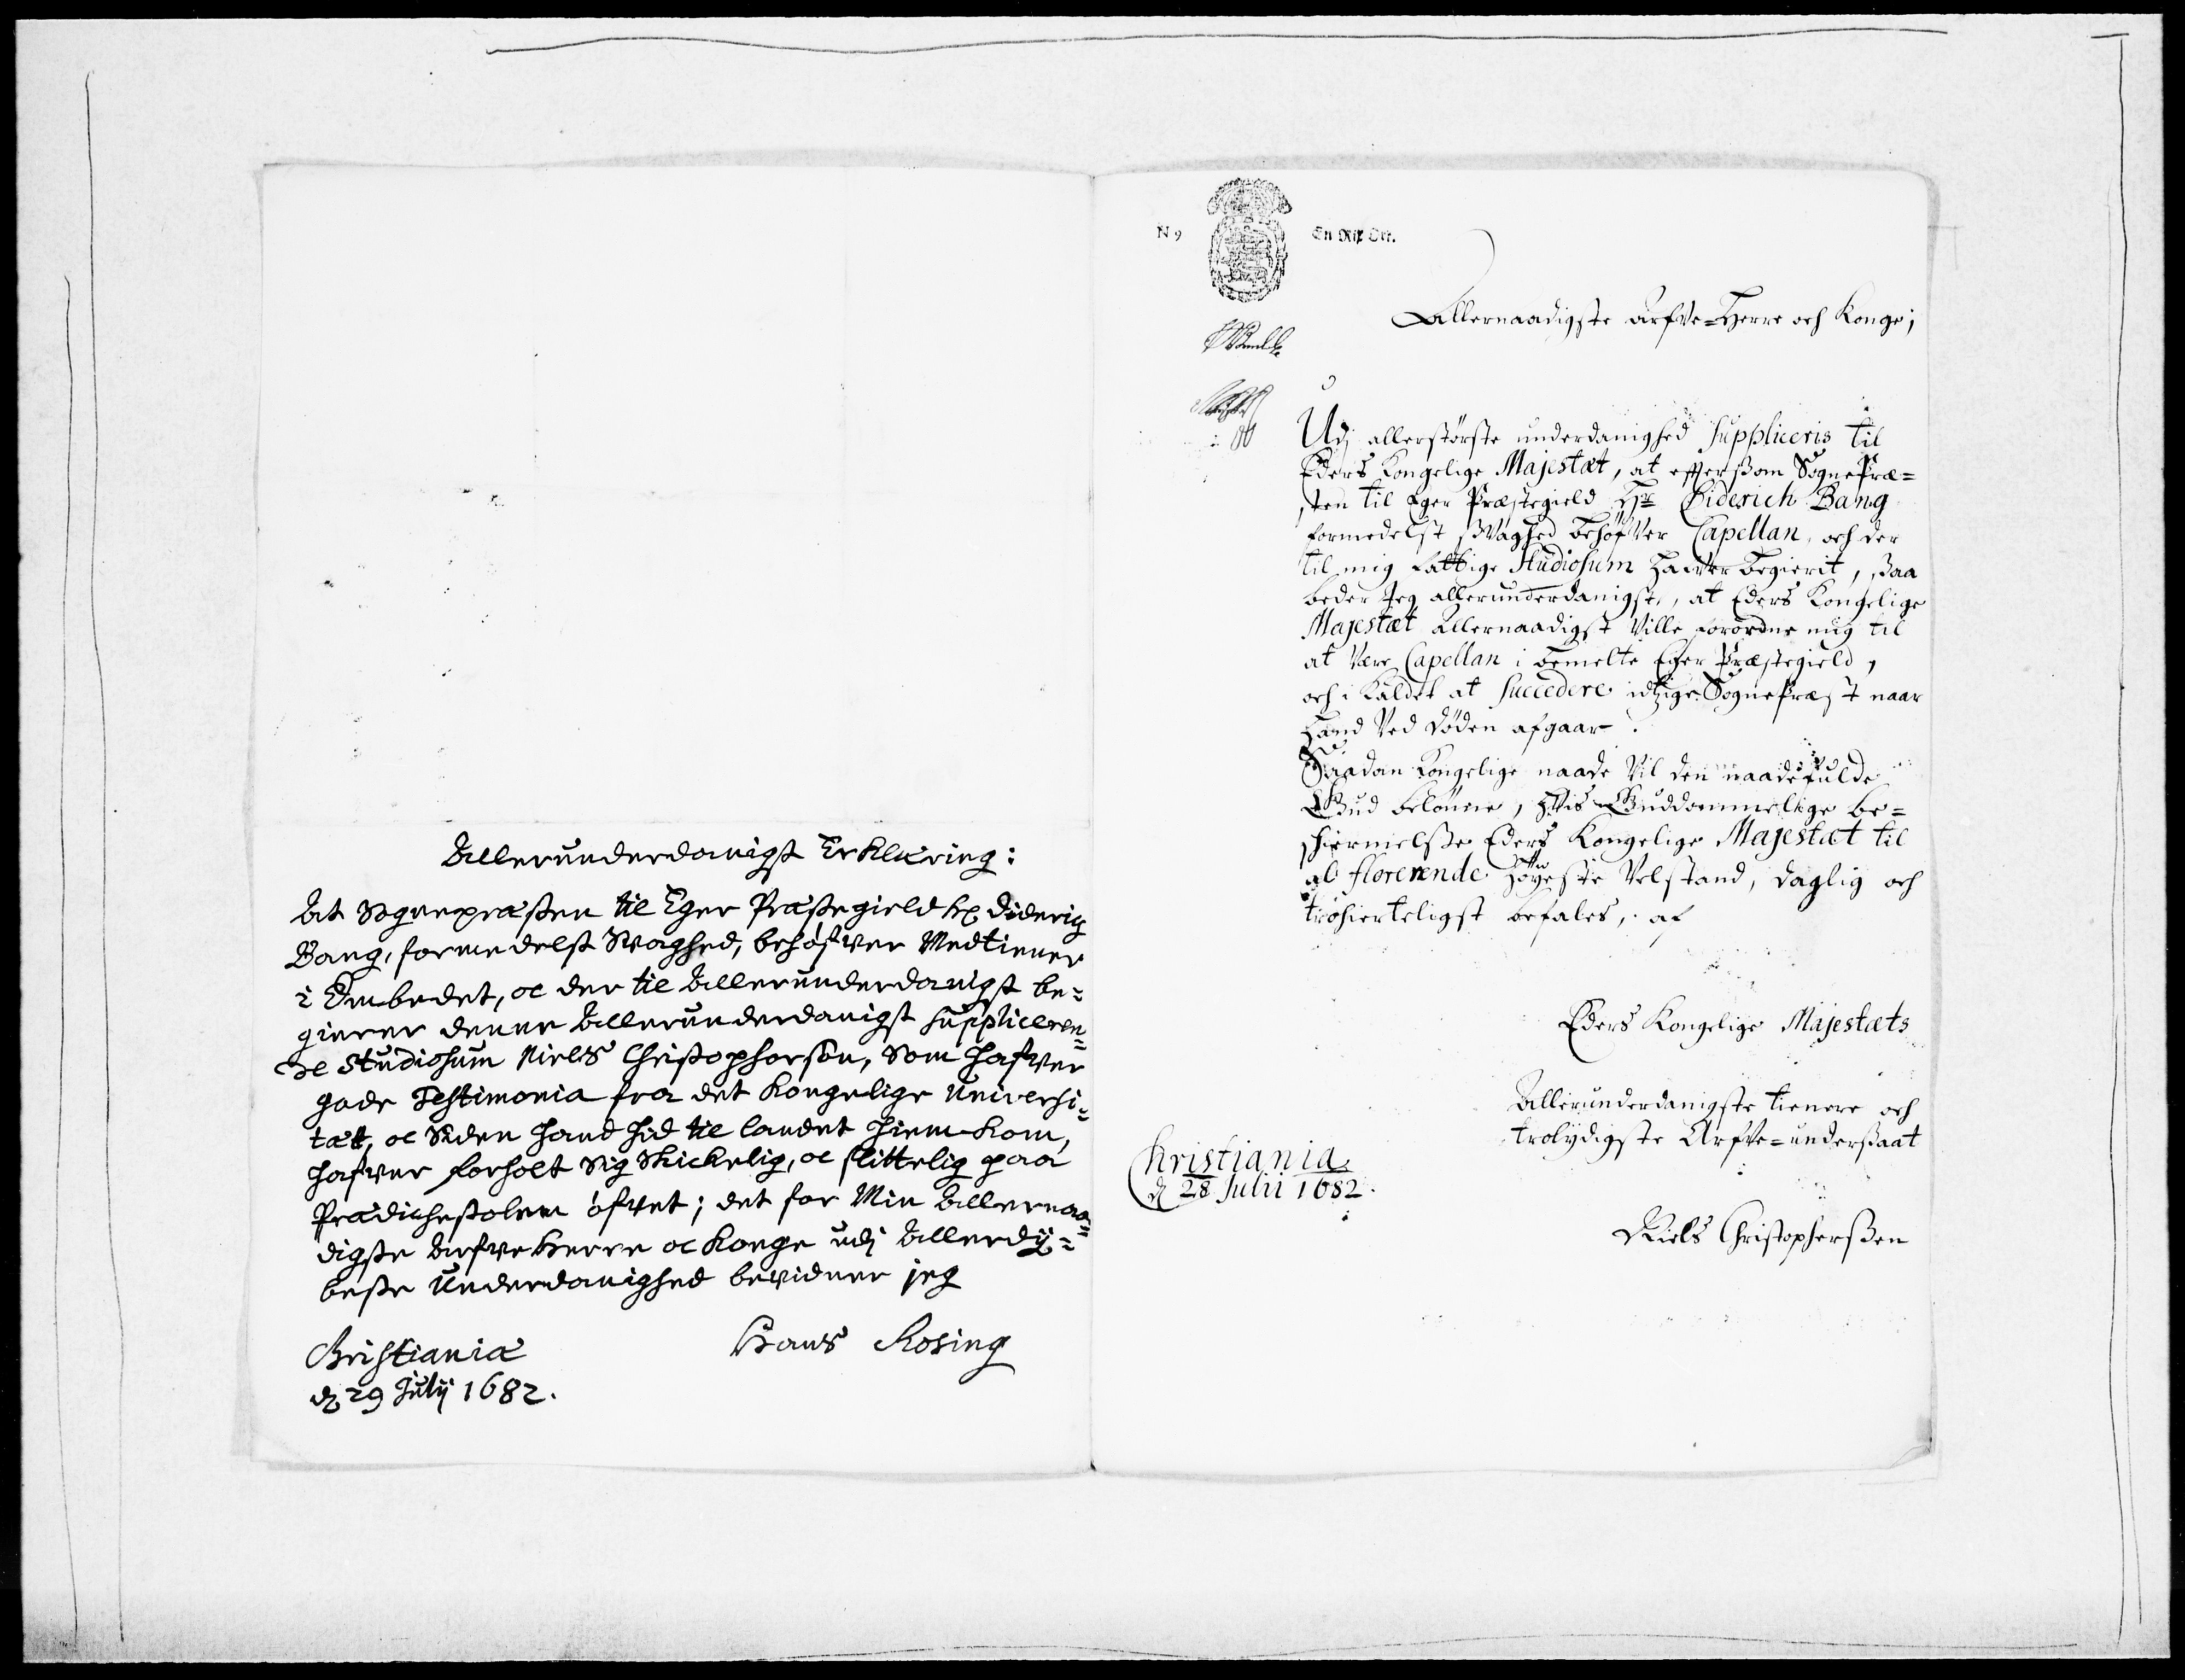 Allerunderdanigst Erklæring:
At Sognepræsten til Eger Præstegield Hr Diderig
Bang, formedelst Svaghed, behøfver Medtiener
i Embedet, oc der til Allerunderdanigst be=
gierer denne Allerunderdanigst Suppliceren=
de Studiosum Niels Christophersøn, Som hafver
gode Testimonia fra det Kongelige Universi=
tæt, oc Siden hand hid til landet hiem kom,
hafver forholt Sig Skickelig, oc flittelig paa
Prædichestolen øfvet; det for Min Allernaa=
digste Arfve Herre oc Konge udj Allerdy=
beste Underdanighed bevidner jeg
Hans Rosing
Christiania
d 29 Julij 1682.
N 9
En Rix Ort.
Allernaadigste Arfve=Herre och Konge;
Udj allerstørste underdanighed Suppliceris til
Eders Kongelige Majestæt, at effterssom Sognepræ=
sten til Eger Præstegield Hr Diderich Bang
formedelst svaghed behøfver Capellan, och der
til mig fattige Studiosum hafver begierit, ssaa
beder Jeg allerunderdanigst, at Eders Kongelige
Majestæt Allernaadigst Ville forordne mig til
at Være Capellan i bemelte Eger Præstegield,
och i Kaldet at Succedere idtzige Sognepræst naar
Hand Ved Døden afgaar.
Saadan Kongelige naade Vil den naadefulde
Gud belønne, hvis Guddommelige be=
schiermelsse Eders Kongelige Majestæt til
al florerende høyeste Velstand, daglig och
trohierteligst befales, af
Eders Kongelige Majestæts
Allerunderdanigste tienere och
trolydigste Arfve=underssaat
Christiania
d 28 Julii 1682.
Niels Christopherssen